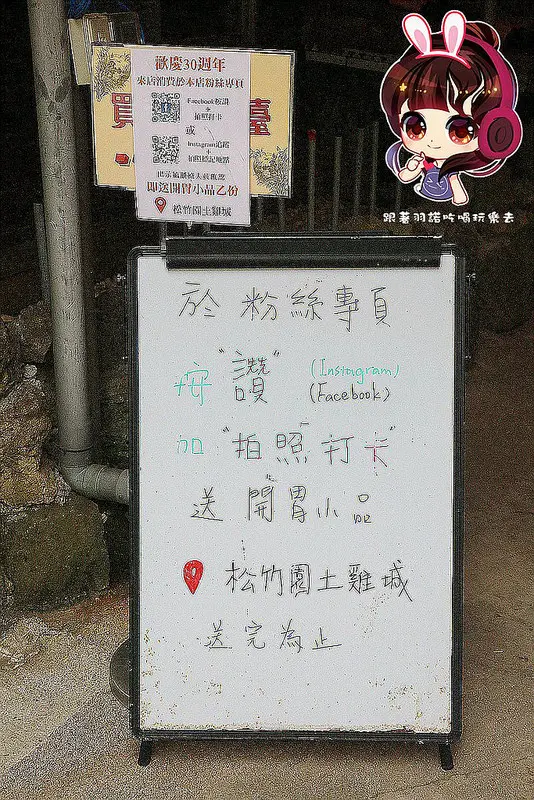 歡慶30週年
來店消費於本店粉絲專頁
Facebook按讚
+
拍照打卡
或
Instagram追蹤
+
拍照標記地點
即送開胃小品乙份
松竹園土雞城
買
臺
跟著羽諾吃喝玩樂去
於粉絲專頁
按"讚" (Instagram)
(Facebook)
加"拍照打卡"
送"開胃小品
松竹園土雞城
送完為止